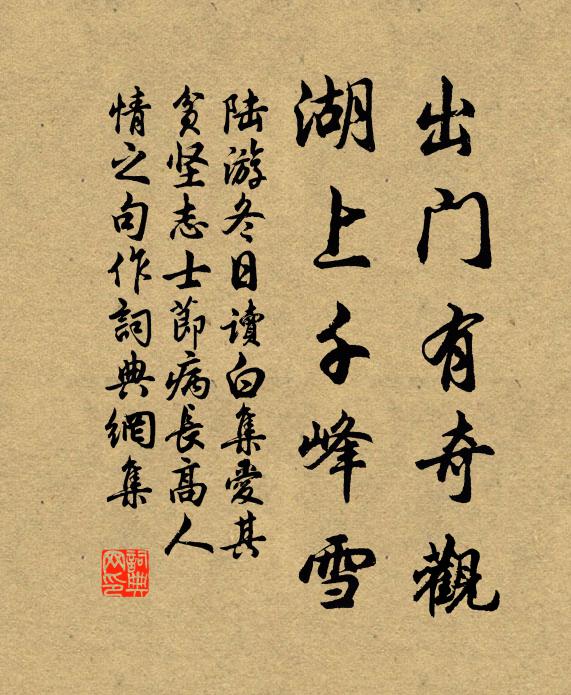 出门有奇觀
湖上千峰雪
陆游冬日读白集爱其
贫坚志士節病長高人
情之句作詞典網集
詞典网印